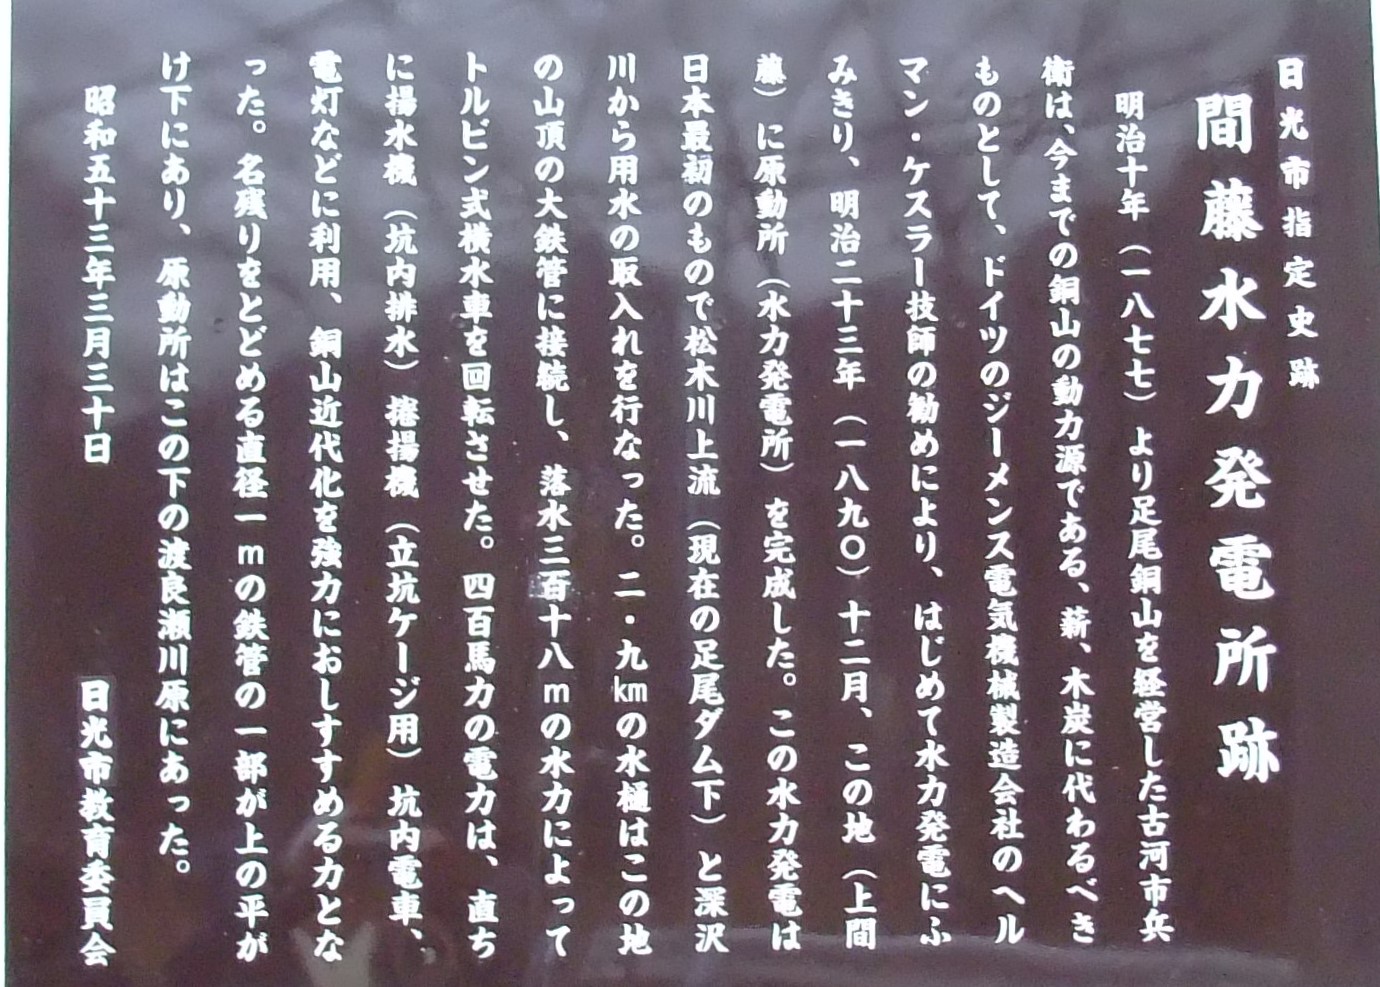 日光市指定史跡
間藤水力発電所跡
明治十年（一八七七）より足尾銅山を経営した古河市兵
衛は、今までの銅山の動力源である、薪、木炭に代わるべき
ものとして、ドイツのジーメンス電気機械製造会社のヘル
マン・ケスラー技師の勧めにより、はじめて水力発電にふ
みきり、明治二十三年（一八九〇）十二月、この地（上間
藤）に原動所（水力発電所）を完成した。この水力発電は
日本最初のもので松木川上流（現在の足尾ダム下）と深沢
川から用水の取入れを行なった。二・九㎞の水樋はこの地
の山頂の大鉄管に接続し、落水三百十八ｍの水力によって
トルビン式横水車を回転させた。四百馬力の電力は、直ち
に揚水機（坑内排水）捲揚機（立坑ケージ用）坑内電車、
電灯などに利用、銅山近代化を強力におしすすめる力とな
った。名残りをとどめる直径一ｍの鉄管の一部が上の平が
け下にあり、原動所はこの下の渡良瀬川原にあった。
昭和五十三年三月三十日
日光市教育委員会